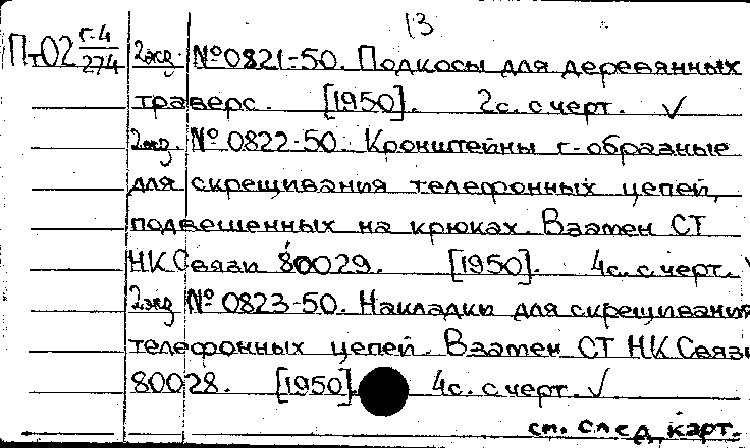 13
ПтО2 г.4/274 2экз. №0821-50. Подкосы для деревянных
траверс. [1950]. 2с. с черт. ✓
2экз. №0822-50. Кронштейны г-образные
для скрещивания телефонных цепей,
подвешенных на крюках. Взамен СТ
НКСвязи 80029. [1950]. 4с. с черт. ✓
2экз №0823-50. Накладки для скрещивания
телефонных цепей. Взамен СТ НКСвязи
80028. [1950] 4с. с черт. ✓
см. след. карт.